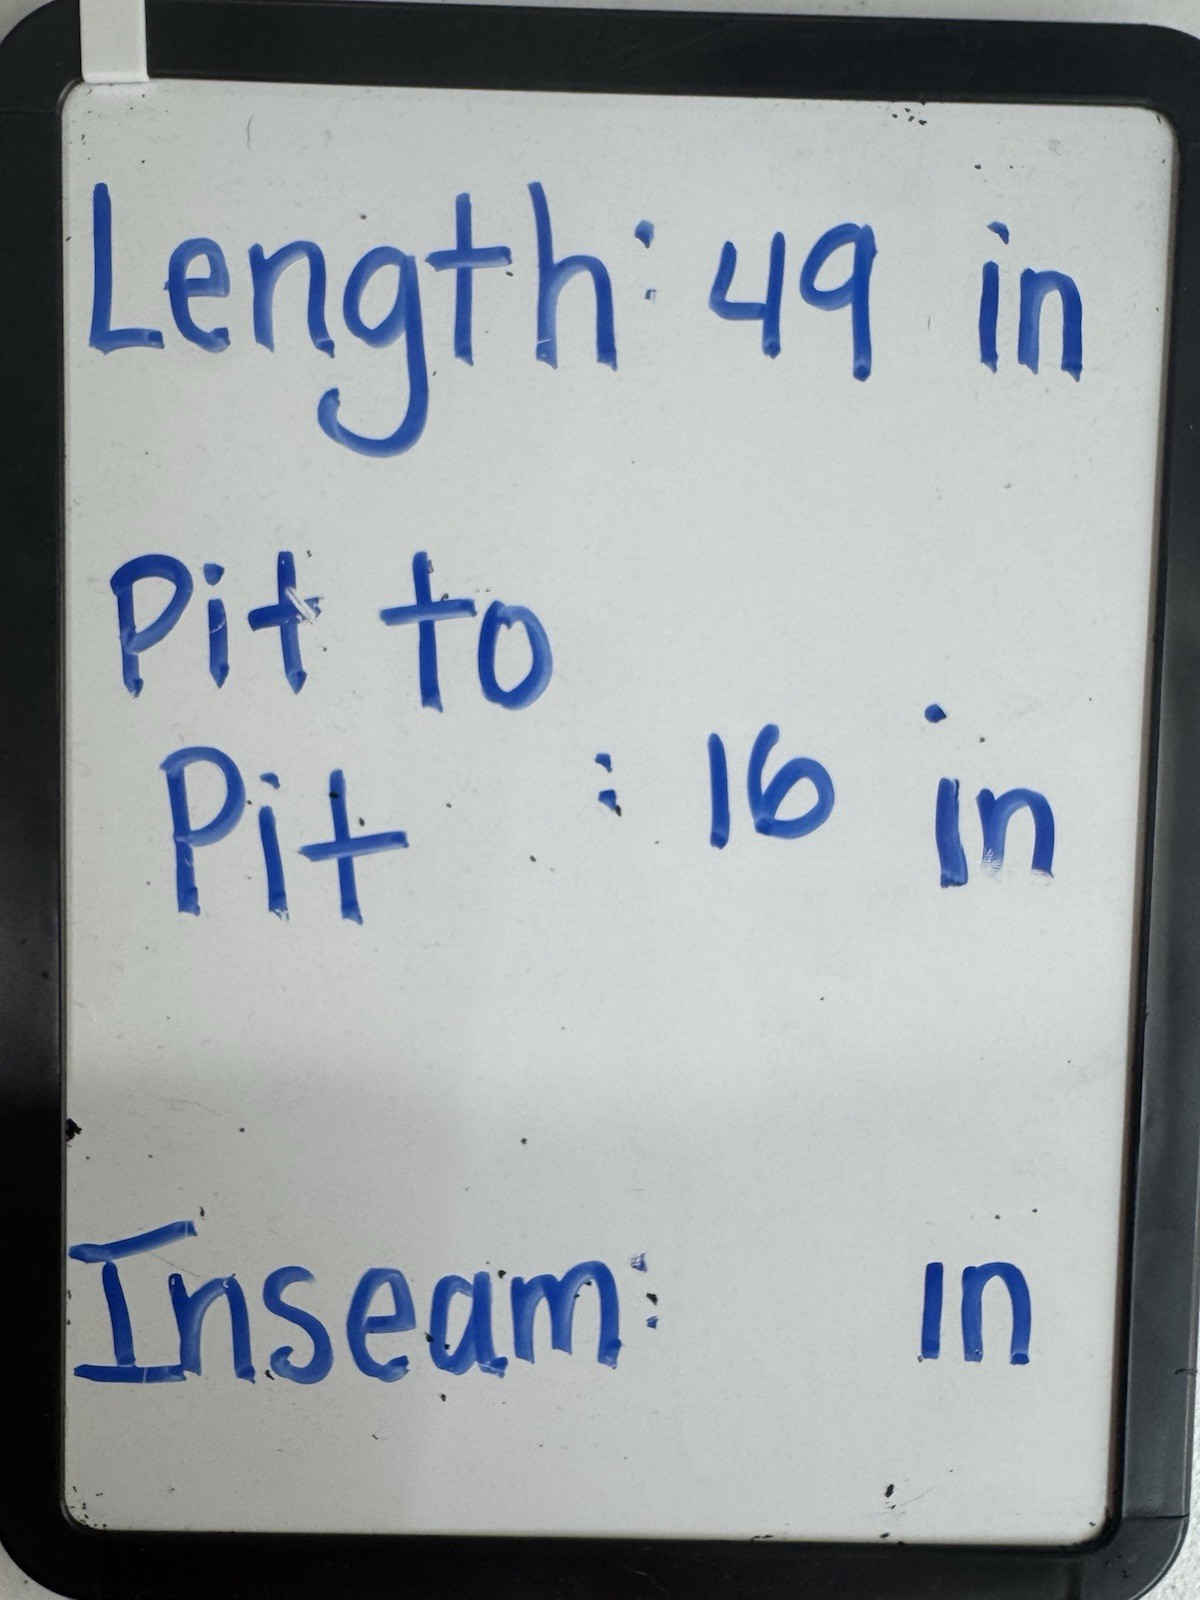 Length: 49 in
Pit to
Pit : 16 in
Inseam: in